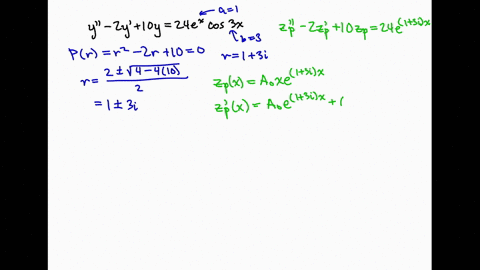 a=1
y″ − 2y′ + 10y = 24eˣ cos 3x
b=3
P(r) = r² − 2r + 10 = 0
r = 1+3i
r = (2 ± √(4−4(10))) / 2
= 1 ± 3i
z_p″ − 2z_p′ + 10z_p = 24e^((1+3i)x)
z_p(x) = A₀xe^((1+3i)x)
z_p′(x) = A₀e^((1+3i)x) + (